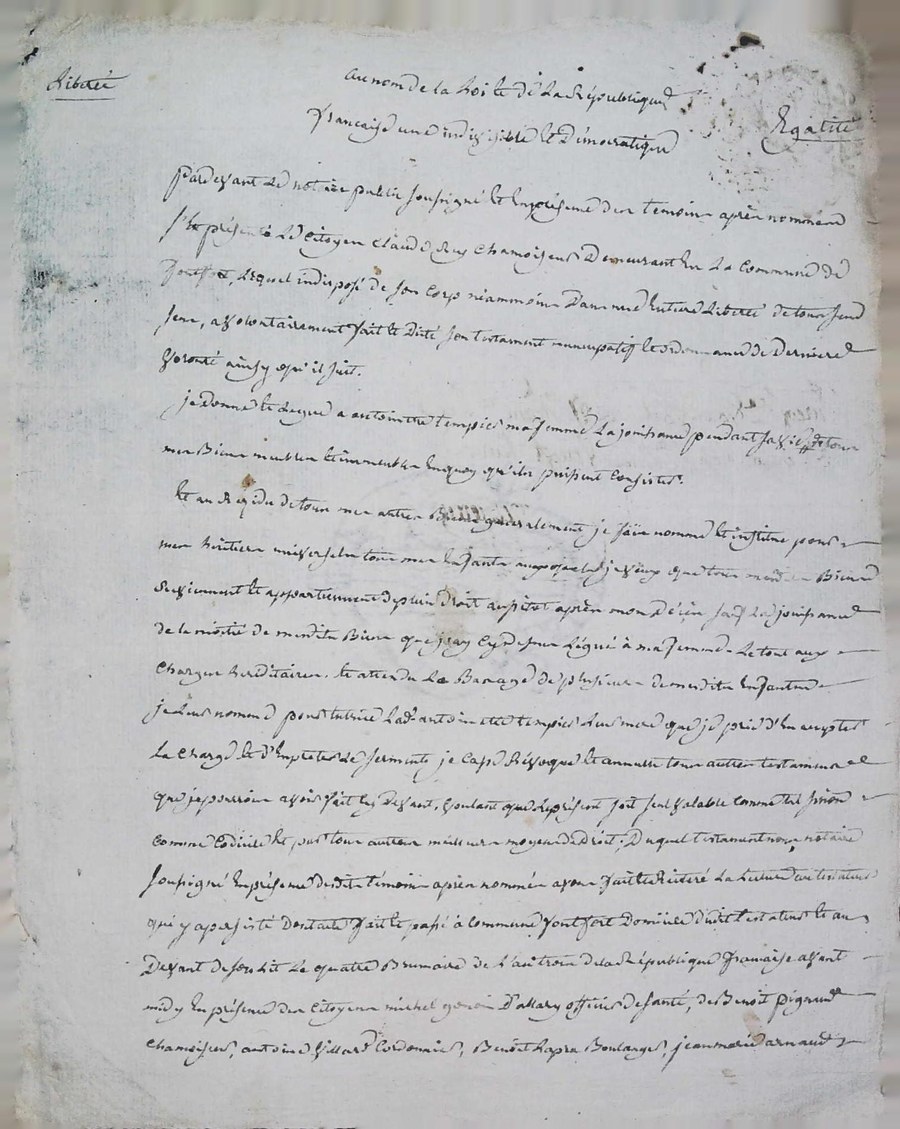 Liberté
au nom de la Loi et de La République
Egalité
française une indivisible et Démocratique
pardevant Le notaire public soussigné et En présence des temoins après nommés
s'est présenté Le Citoyen Claude Chamoiseur Demeurant En La Commune de
fontfort, Lequel indisposé de son Corps néammoins Dans une Entiere Liberté de tous ses
sens, a volontairement fait et Dicté son testament nuncupatif et ordonnance de Derniere
volonté ainsy qu'il suit.
je donne et Legue a antoinette tempier ma femme La jouissance pendant sa vie de tous
mes Biens meubles et immeubles En quoy qu'ils puissent Consister.
et au Residu de tous mes autres Biens généralement je fais nomme et institue pour
mes héritiers universels tous mes Enfants auxquels je veux que tous mesdits Biens
Reviennent et appartiennent de plein Droit aussitot après mon Décès sauf La jouissance
de la moitié de mesdits Biens que j'ay Cy Dessus Légué à ma femme Le tout aux
Charges héréditaires. et attendu Le Bas age de plusieurs de mesdits Enfants
je Leur nomme pour tutrice Ladte antoinette tempier Leur mere que je prie d'En accepter
La Charge et d'En preter Le serment; je Casse Révoque et annulle tous autres testaments
que je pourrois avoir fait Cy Devant, voulant que Le présent soit seul valable Comme tel sinon
comme Codicile et par tous autres meilleurs moyens de droit; Duquel testament nous notaire
soussigné En présence desdits témoins après nommés avons fait et Réitéré La Lecture au testateur
qui y a persisté Dont acte fait et passé à Commune fontfort Domicile dudit testateur et au
Devant de son Lit Le quatre Brumaire de L'an trois de La République française avant
midy En présence des Citoyens michel D'allary officier de santé, de Benoit pignard
Chamoiseur, antoine villard Cordonnier, Benoit Lapra Boulanger, jean marie arnaud